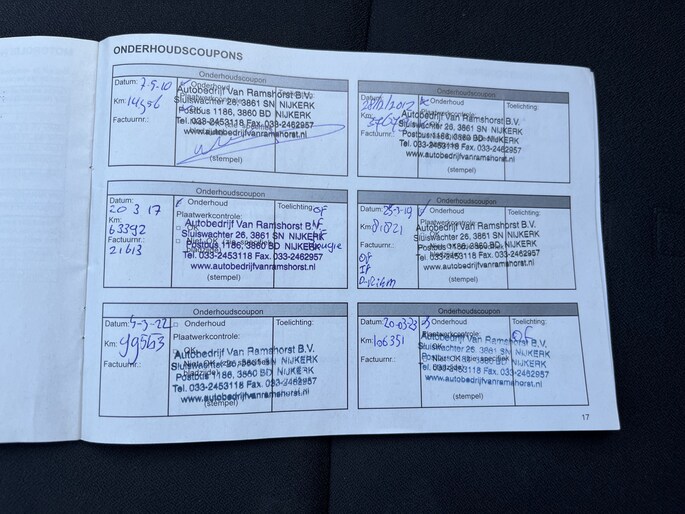 ONDERHOUDSCOUPONS
Onderhoudscoupon
Datum: 7-9-10
Onderhoud
Toelichting:
Km:
Factuurnr.:
Autobedrijf Van Ramshorst B.V.
Sluiswachter 26, 3861 SN NIJKERK
Postbus 1186, 3860 BD NIJKERK
Tel. 033-2453118 Fax. 033-2462957
www.autobedrijfvanramshorst.nl
(stempel)
Onderhoudscoupon
Onderhoud
Toelichting:
Km:
Factuurnr.:
Autobedrijf Van Ramshorst B.V.
Sluiswachter 26, 3861 SN NIJKERK
Postbus 1186, 3860 BD NIJKERK
Tel. 033-2453118 Fax. 033-2462957
www.autobedrijfvanramshorst.nl
(stempel)
Onderhoudscoupon
Datum:
20 3 17
Onderhoud
Toelichting: OF
Km:
63392
Plaatwerkcontrole:
Factuurnr.:
21613
Autobedrijf Van Ramshorst B.V.
Sluiswachter 26, 3861 SN NIJKERK
Postbus 1186, 3860 BD NIJKERK
Tel. 033-2453118 Fax. 033-2462957
www.autobedrijfvanramshorst.nl
(stempel)
Onderhoudscoupon
Datum: 25-3-19
Onderhoud
Toelichting:
Km: 81821
Plaatwerkcontrole:
Factuurnr.:
OF
IF
Autobedrijf Van Ramshorst B.V.
Sluiswachter 26, 3861 SN NIJKERK
Postbus 1186, 3860 BD NIJKERK
Tel. 033-2453118 Fax. 033-2462957
www.autobedrijfvanramshorst.nl
(stempel)
Onderhoudscoupon
Datum: 4-3-22
Onderhoud
Toelichting:
Km: 99563
Plaatwerkcontrole:
OK
Factuurnr.:
Autobedrijf Van Ramshorst B.V.
Sluiswachter 26, 3861 SN NIJKERK
Postbus 1186, 3860 BD NIJKERK
Tel. 033-2453118 Fax. 033-2462957
www.autobedrijfvanramshorst.nl
(stempel)
Onderhoudscoupon
Datum: 20-03-23
Onderhoud
Toelichting:
OF
Km: 106351
Plaatwerkcontrole:
OK
Factuurnr.:
Autobedrijf Van Ramshorst B.V.
Sluiswachter 26, 3861 SN NIJKERK
Postbus 1186, 3860 BD NIJKERK
Tel. 033-2453118 Fax. 033-2462957
www.autobedrijfvanramshorst.nl
(stempel)
17